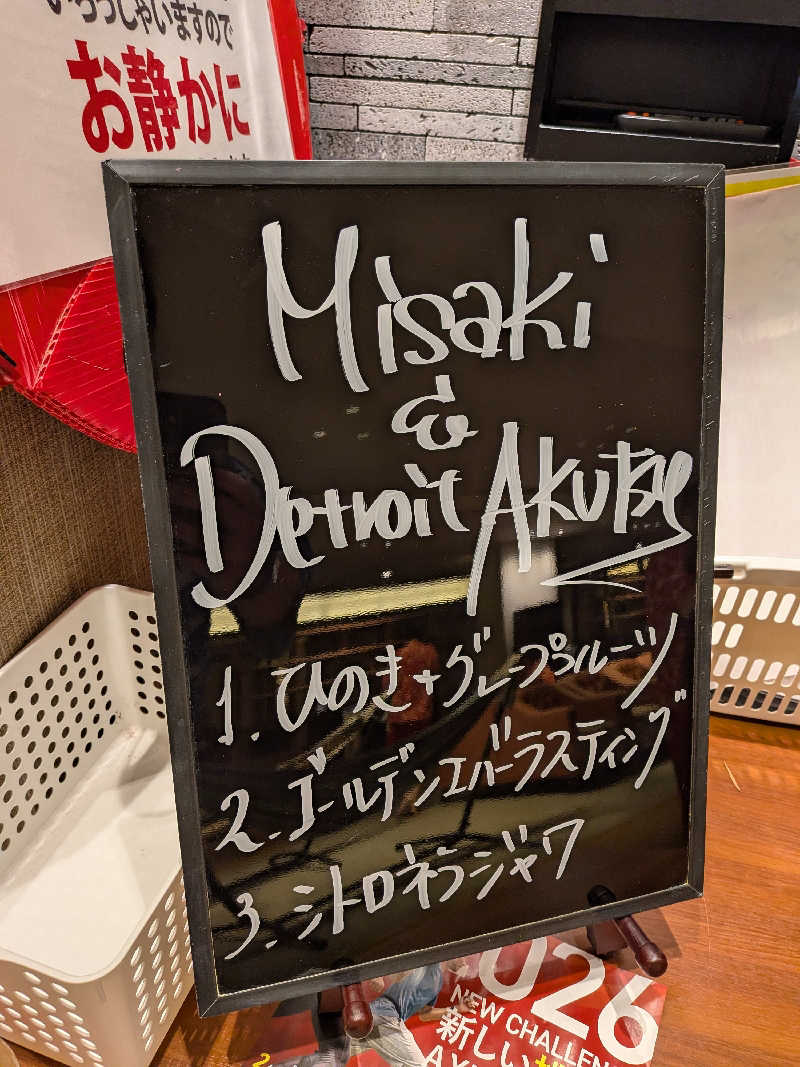 いらっしゃいますので
お静かに
Misaki
&
Detroit Akutsu
1. ひのき+グレープフルーツ
2. ゴールデンエバーラスティング
3. シトロネラジャワ
026
NEW CHALLEN
新しい